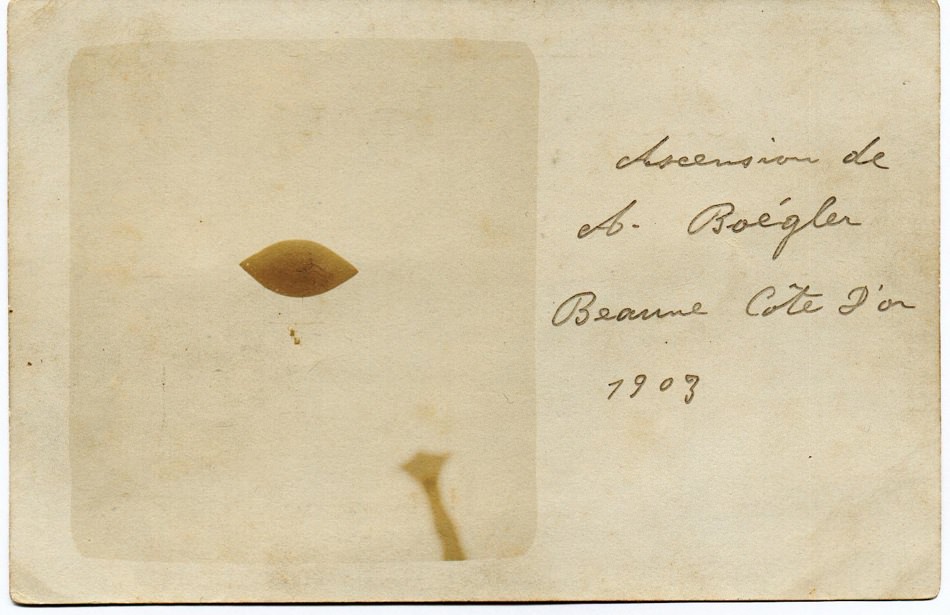 Ascension de
A. Boégler
Beaune Côte d'or
1903